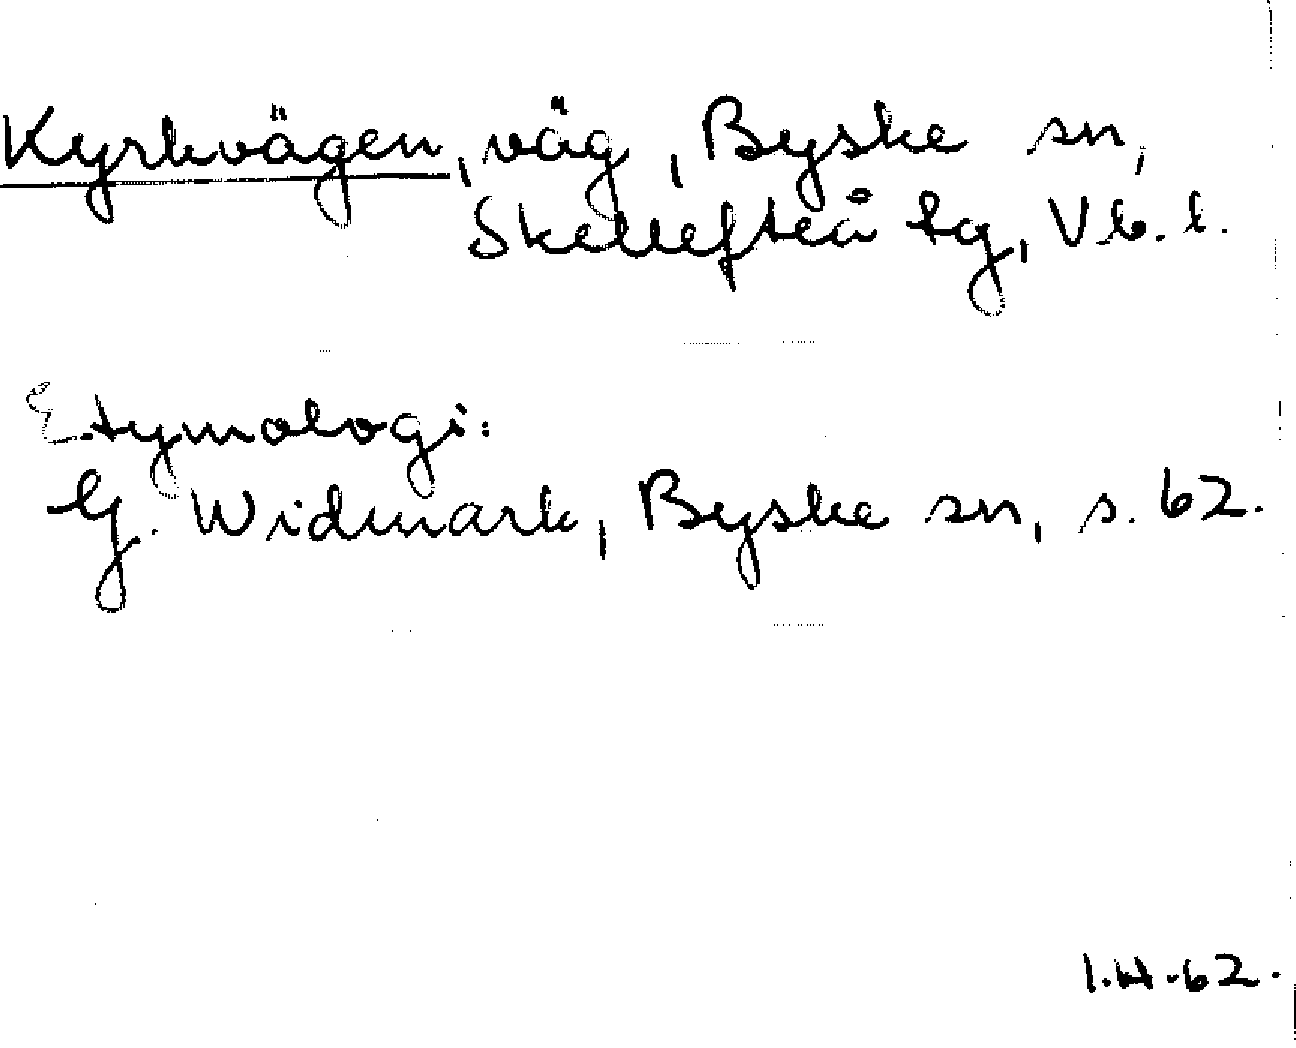 Kyrkvägen, väg, Byske sn,
Skellefteå tg, Vb. l.
Etymologi:
G. Widmark, Byske sn, s. 62.
I.H.62.